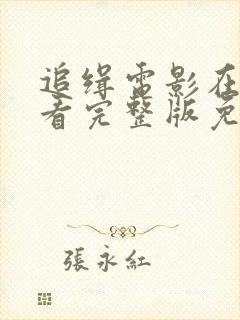 追缉电影在
看完整版免
張永紅